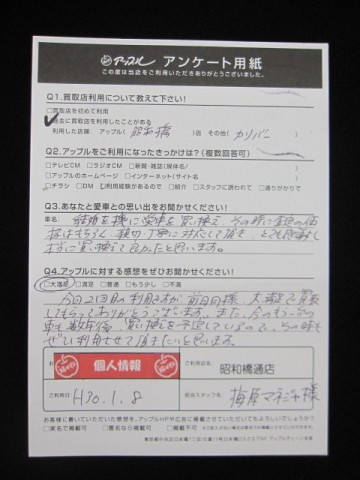 アップル アンケート用紙
この度は当店をご利用いただきありがとうございました。
Q1.買取店利用について教えて下さい!
□買取店を初めて利用
過去に買取店を利用したことがある
利用した店舗: アップル( 昭和橋 )店 その他( ガリバー )
Q2.アップルをご利用になったきっかけは?(複数回答可)
□テレビCM □ラジオCM □新聞・雑誌(媒体名/ )
□アップルのホームページ □インターネット(サイト名 )
□チラシ □DM □利用経験があるので □紹介 □スタッフに誘われて □通りがかりで
Q3.あなたと愛車との思い出をお聞かせください!
車名: 結婚を機に愛車を買い換え、その時に金額の価
格はもちろん、親切、丁寧に対応して頂き、とても感謝し
買い換えて良かったと思います。
Q4.アップルに対する感想をぜひお聞かせください!
□大満足 □満足 □普通 □もう少し □不満
今回2回目の利用ですが、前回同様、大満足で買取
してもらってありがとうございます。また、今のもう一台の
車も数年後、買い換えを予定しているので、その時も
ぜひ利用させて頂きたいと思います。
個人情報
ご利用店名 昭和橋通店
ご利用日 H30.1.8
担当スタッフ名 梅原マネージャー様
お客様に書いていただいた感想を、アップルHPや広告に掲載させていただいてもよろしいでしょうか?
□実名で掲載可 □匿名なら掲載可 □掲載不可